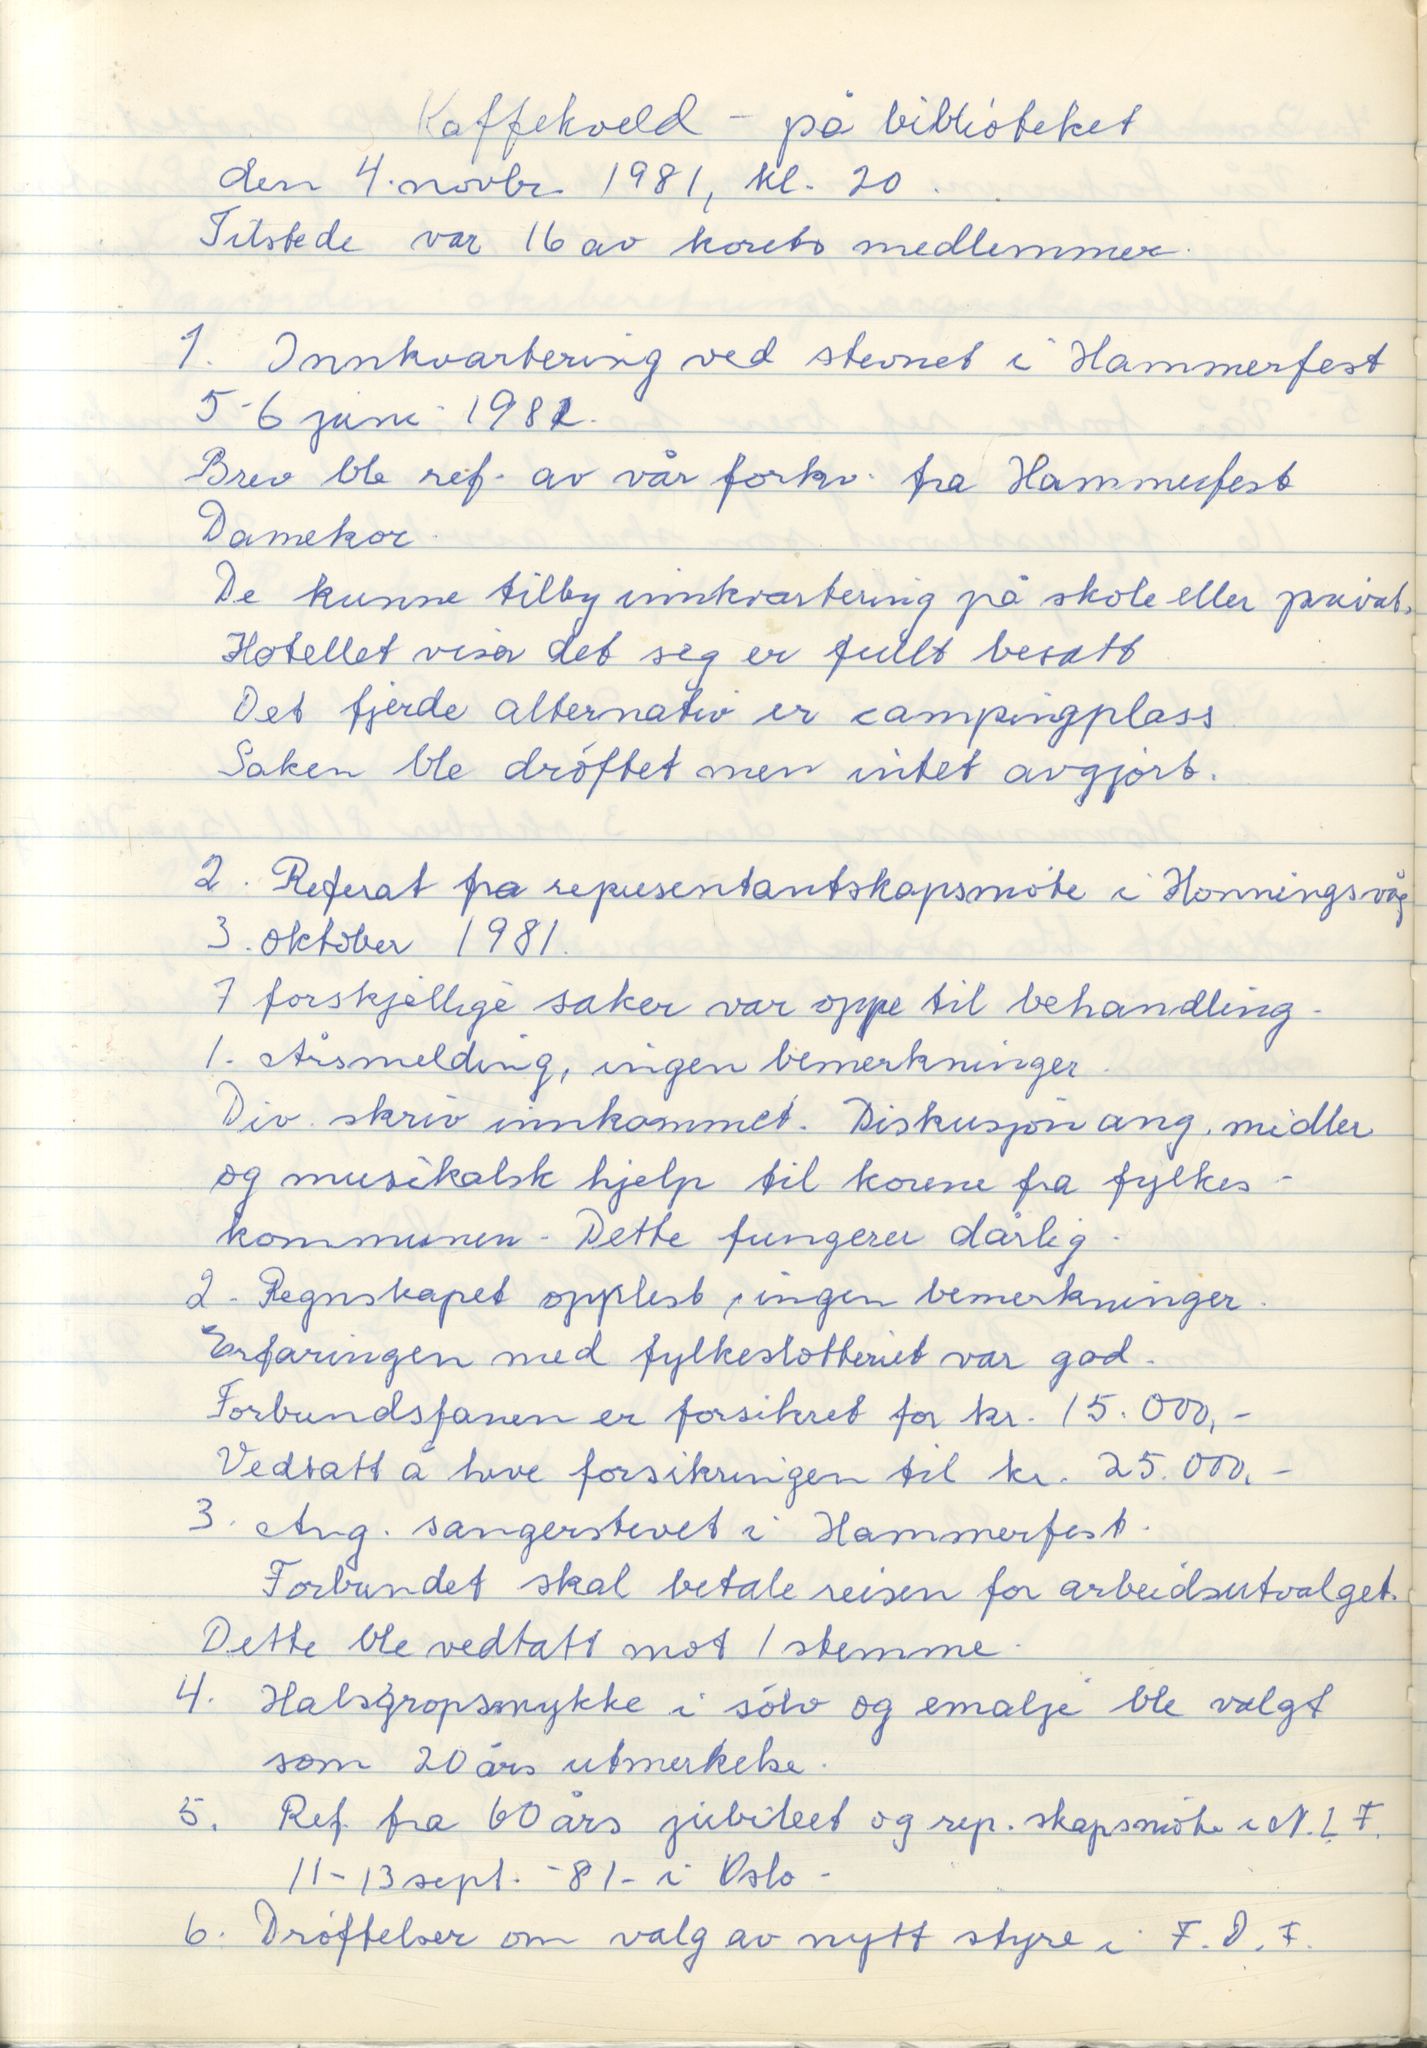 Kaffekveld - på biblioteket
den 4. novbr. 1981, kl. 20.
Tilstede var 16 av korets medlemmer.
1. Innkvartering ved stevnet i Hammerfest
5-6 juni 1982.
Brev ble ref. av vår forkv. fra Hammerfest
Damekor.
De kunne tilby innkvartering på skole eller privat.
Hotellet viser det seg er fullt besatt
Det fjerde alternativ er campingplass
Saken ble dröftet men intet avgjort.
2. Referat fra representantskapsmöte i Honningsvåg
3. oktober 1981.
7 forskjellige saker var oppe til behandling.
1. Årsmelding, ingen bemerkninger.
Div. skriv innkommet. Diskusjon ang. midler
og musikalsk hjelp til korene fra fylkes-
kommunen. Dette fungerer dårlig.
2. Regnskapet opplest, ingen bemerkninger.
Erfaringen med fylkeslotteriet var god.
Forbundsfanen er forsikret for kr. 15.000,-
Vedtatt å heve forsikringen til kr. 25.000,-
3. Ang. sangerstevet i Hammerfest.
Forbundet skal betale reisen for arbeidsutvalget.
Dette ble vedtatt mot 1 stemme.
4. Halsgropsmykke i sölv og emalje ble valgt
som 20 års utmerkelse.
5. Ref. fra 60 års jubileet og rep. skapsmöte i N. L. F.
11-13 sept. -81- i Oslo -
6. Dröftelser om valg av nytt styre i F. D. F.